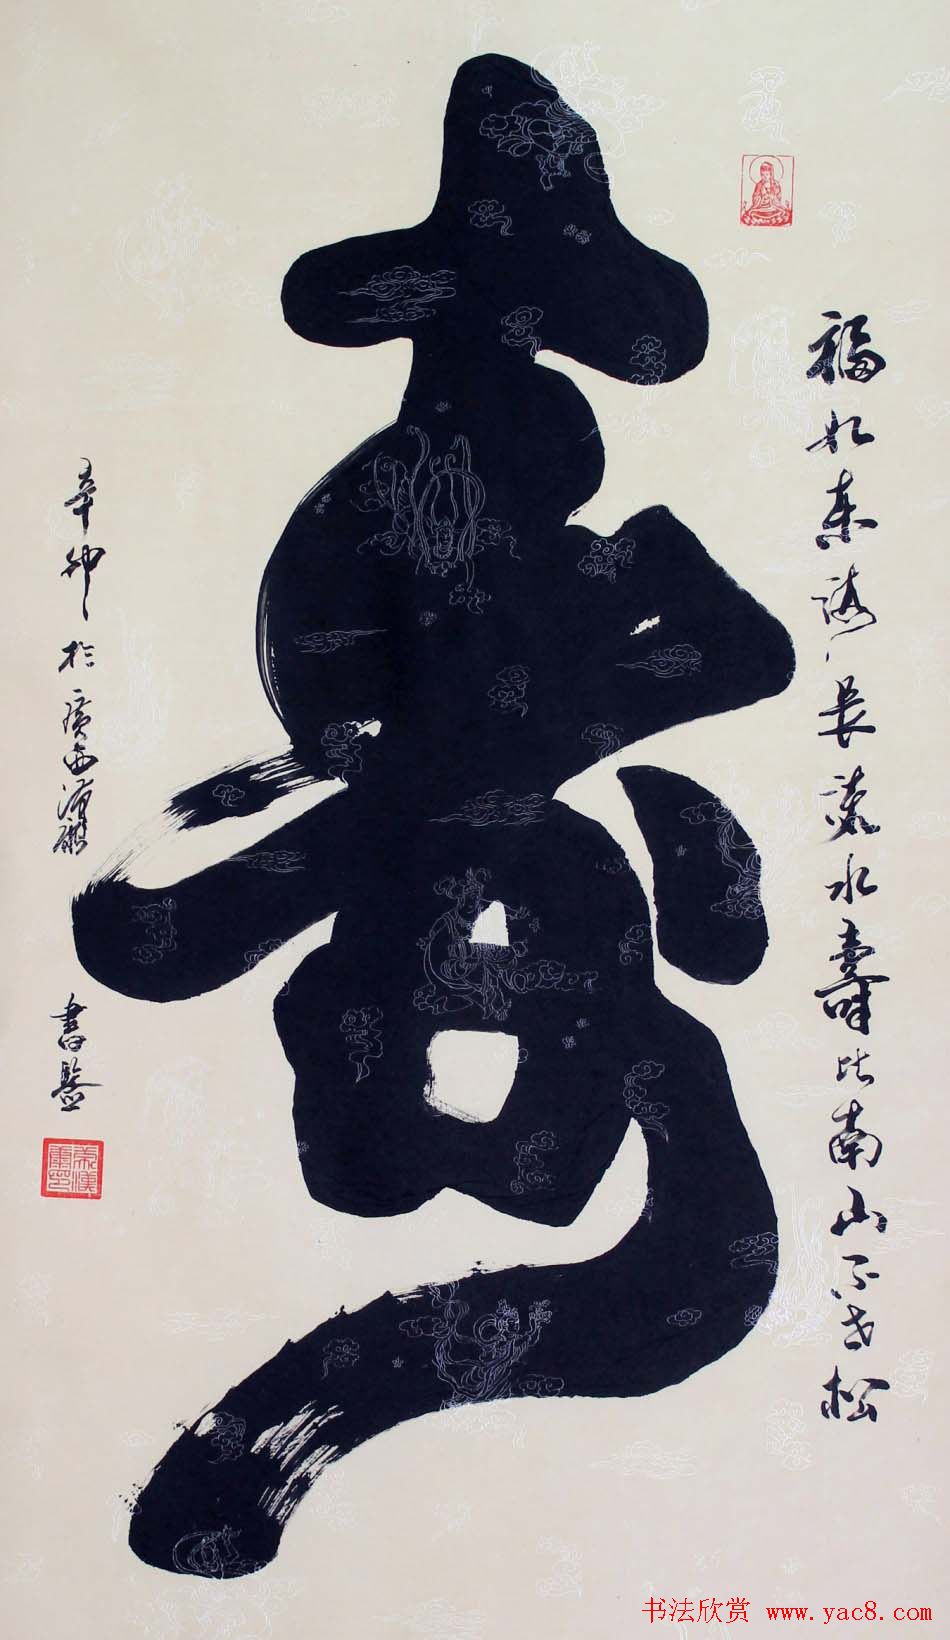 福如東海長流水壽比南山不老松
壽
辛卯於廣西
書法欣赏 www.yac8.com